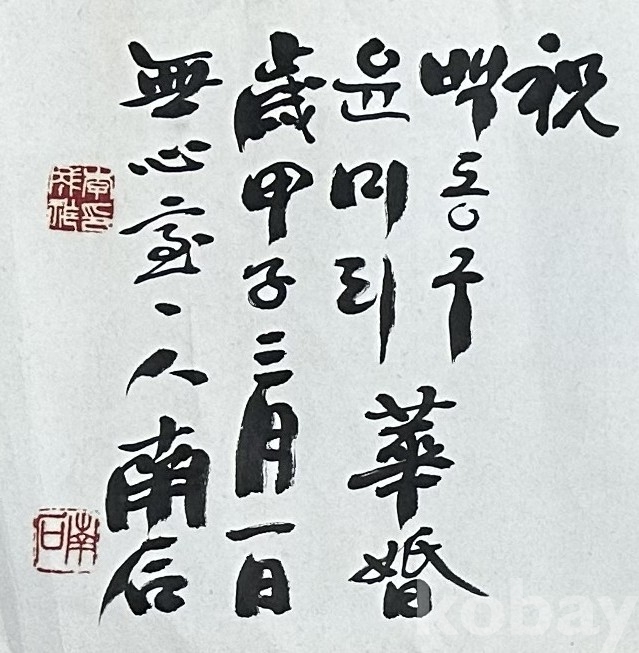 祝
박동구
윤미리
華婚
歲甲子三月一日
無心室丶人南石
南石
kobay